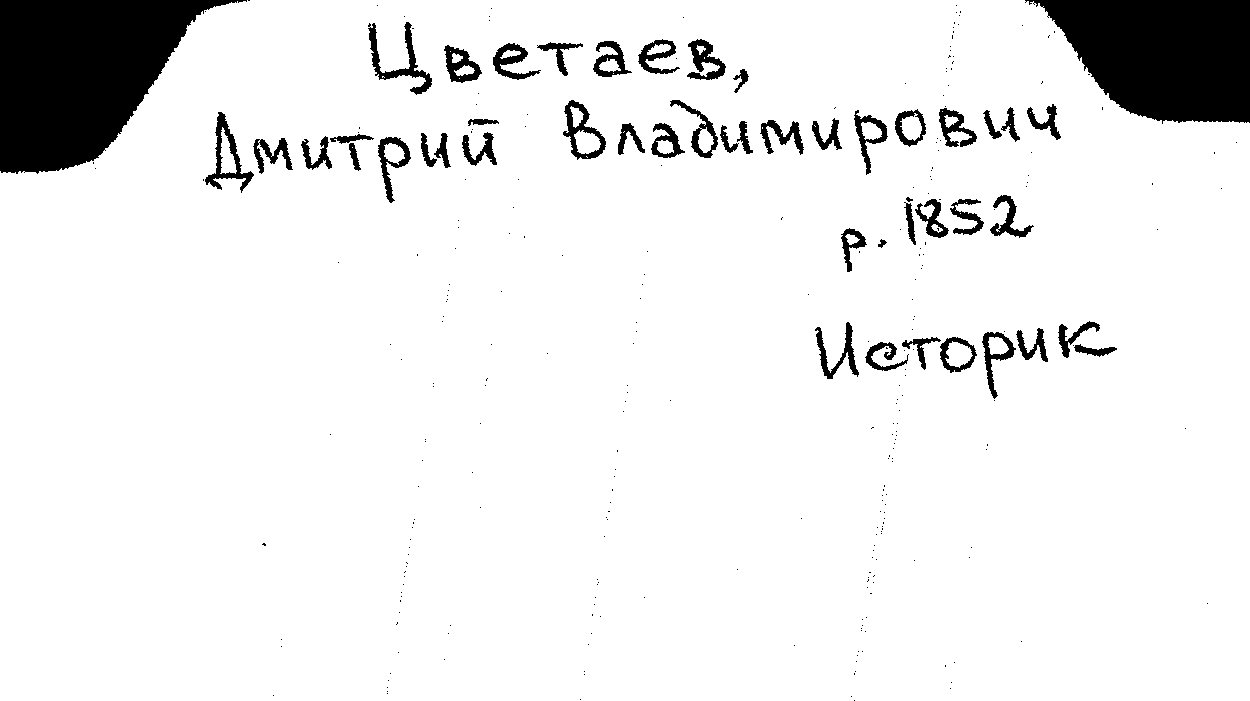 Цветаев,
Дмитрий Владимирович
р. 1852
Историк